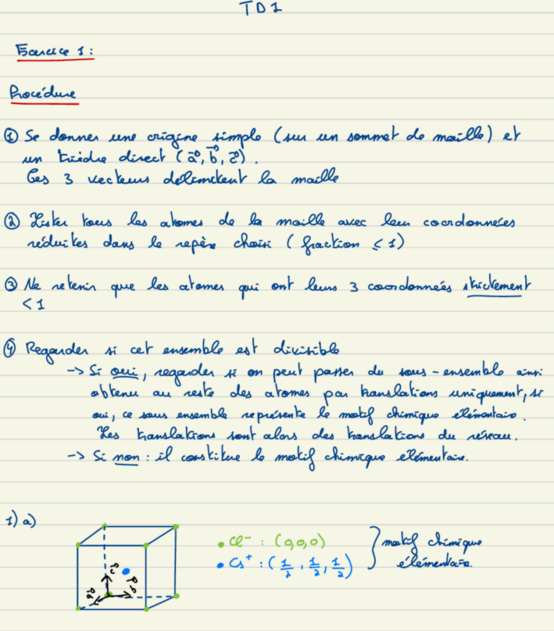 TD1
Exercice 1 :
Procédure
① Se donner une origine simple (sur un sommet de maille) et
un trièdre direct (a⃗, b⃗, c⃗).
Ces 3 vecteurs délimitent la maille
② Lister tous les atomes de la maille avec leurs coordonnées
réduites dans le repère choisi (fraction ≤ 1)
③ Ne retenir que les atomes qui ont leurs 3 coordonnées strictement
< 1
④ Regarder si cet ensemble est divisible
→ Si oui, regarder si on peut passer du sous-ensemble ainsi
obtenu au reste des atomes par translations uniquement, si
oui, ce sous ensemble représente le motif chimique élémentaire.
Les translations sont alors des translations du réseau.
→ Si non : il constitue le motif chimique élémentaire.
1) a)
• Cl⁻ : (0,0,0)
• Cs⁺ : (1/2, 1/2, 1/2)
} motif chimique
élémentaire
a⃗ b⃗ c⃗